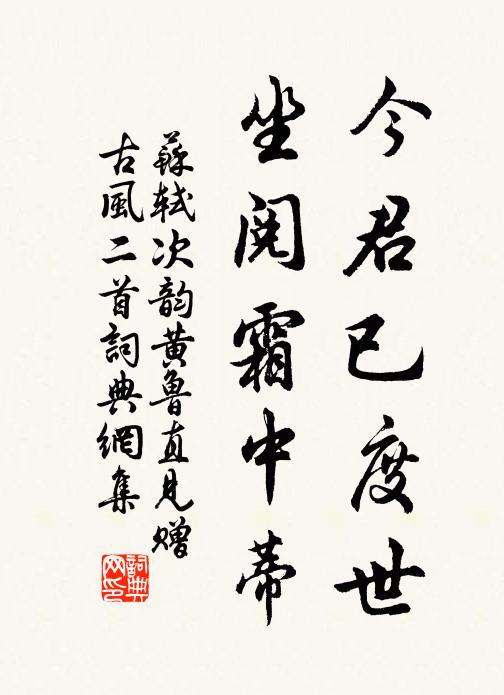 今君已度世
坐阅霜中蒂
蘇軾次韵黄魯直見赠
古風二首詞典網集
詞典网印